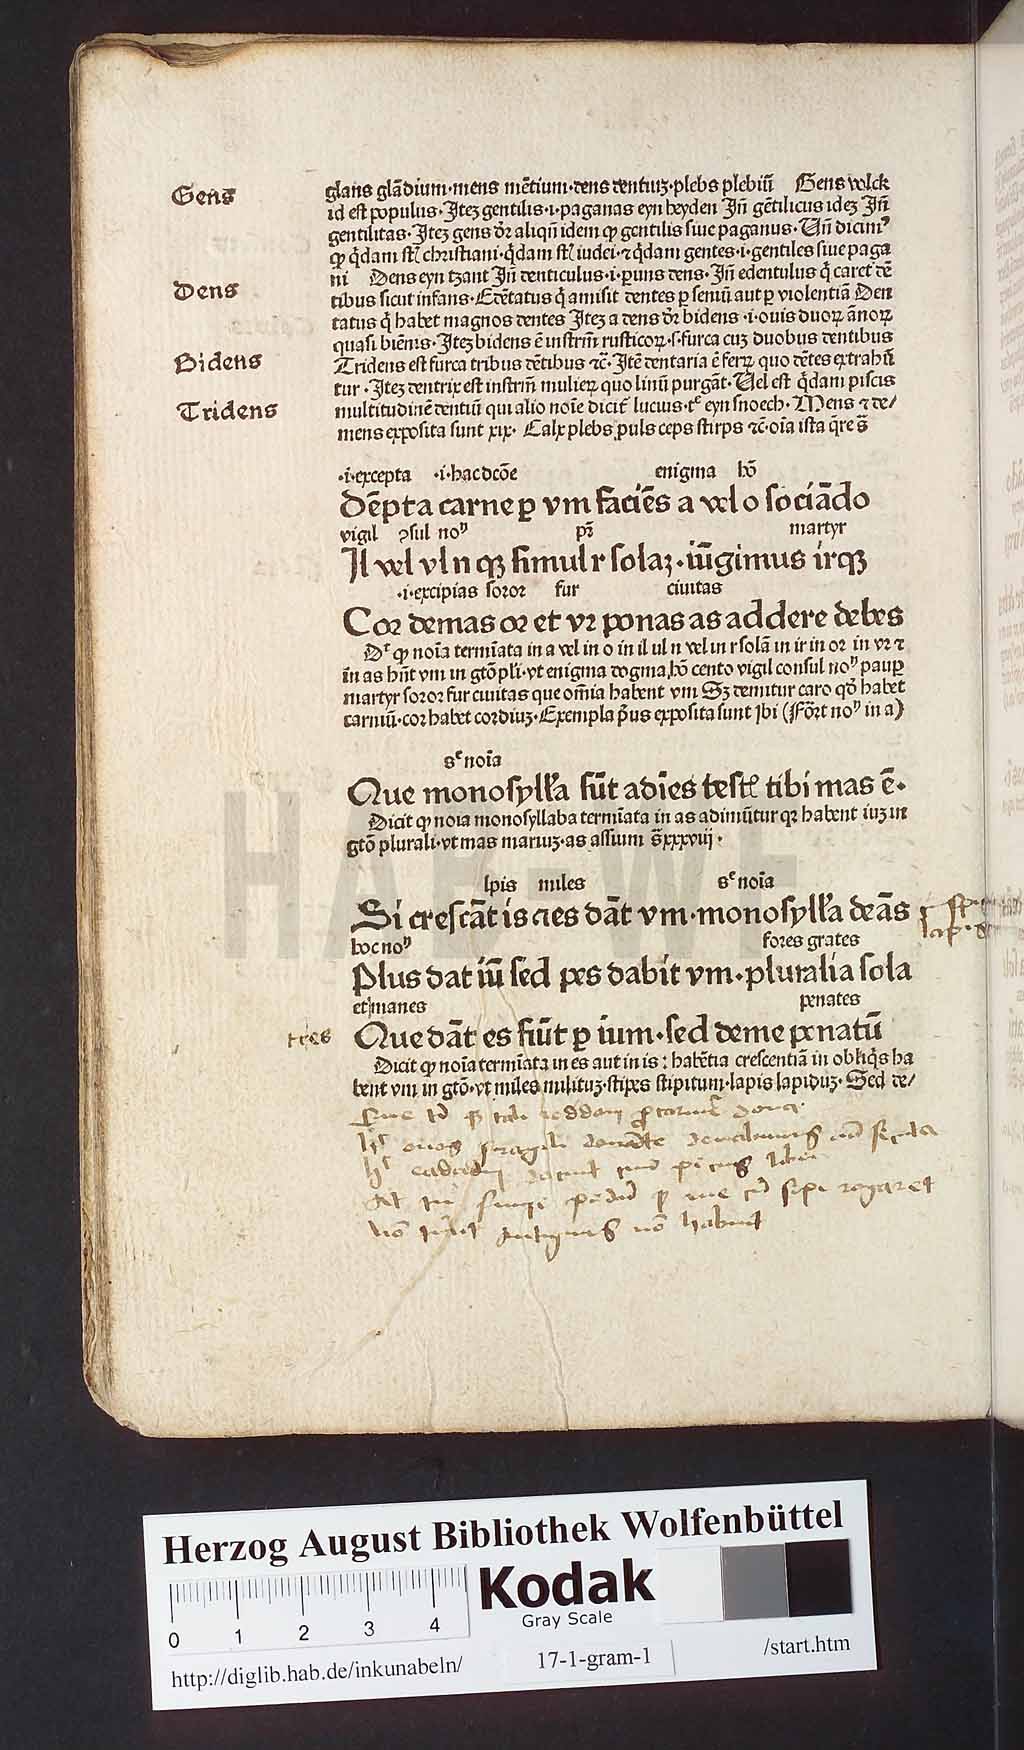 Gens
glans glādium·mens mētium·dens dentiuz·plebs plebiū Gens volck
id est populus·Itez gentilis·i·paganas eyn heyden Jn̄ gētilicus idez Jn̄
gentilitas·Itez gens dr̄ aliqn̄ idem qp gentilis siue paganus·Un̄ dicimꝰ
qp qdam st̄ christiani·qdam st̄ iudei·⁊ qdam gentes·i·gentiles siue paga
ni Dens eyn tzant Jn̄ denticulus·i·puus dens·Jn̄ edentulus q̄ caret dē
Dens
tibus sicut infans·Edētatus q̄ amisit dentes p seniū aut p violentiā Den
tatus q̄ habet magnos dentes Itez a dens dr̄ bidens·i·ouis duoꝝ ānoꝝ
quasi biēnis·Itez bidens ē instrm̄ rusticoꝝ·s·furca cuz duobus dentibus
Bidens
Tridens est furca tribus dētibus ⁊c̄·Itē dentaria ē ferꝝ quo dētes extrahū
tur·Itez dentrix est instrm̄ mulieꝝ quo linū purgāt·Uel est qdam piscis
Tridens
multitudinē dentiū qui alio noīe dicit̄ lucius·tᶜ eyn snoech·Mens ⁊ de/
mens exposita sunt xix· Calx plebs puls ceps stirps ⁊c̄·oīa ista q̄re s̄
·i·excepta ·i·hac dcōe enigma bō
Dēpta carne ꝑ vm faciēs a vel o sociādo
vigil ꝯsul noⁿ pr̄ martyr
Il vel vl n qꝫ simul r solaꝫ·iūgimus irqꝫ
·i·excipias soror fur ciuitas
Cor demas or et vr ponas as addere debes
Dʳ qp noīa termīata in a vel in o in il ul n vel in r solā in ir in or in vr ⁊
īn as hn̄t vm in gtō pli·vt enigma dogma, bō cento vigil consul noⁿ paup
martyr soror fur ciuitas que om̄ia habent vm Sz demitur caro qð habet
carniū·cor habet cordiuz·Exempla p̄us exposita sunt Ibi (Fōrt noⁿ in a)
sᶜ noīa
Que monosyll'a sūt adīes test̄ tibi mas ē·
Dicit qp noīa monosyllaba termīata in as adimūtur qr habent iuz in
gtō plurali·vt mas mariuz·as assium s̄ xxxviij·
lpis miles sᶜ noīa
Si crescāt is ⁊ es dāt vm·monosyll'a deās
hoc noⁿ fores grates
Plus dat iū sed pes dabit vm·pluralia sola
et manes penates
tres
Que dāt es fiūt ꝑ ium·sed deme penatū
Dicit qp noīa termīata in es aut in is: habētia crescentiā in obliq̄s ha
bent vm in gtō·vt miles milituz·stipes stipitum·lapis lapiduz·Sed de/
HAB-WF
Herzog August Bibliothek Wolfenbüttel
0 1 2 3 4
Kodak
Gray Scale
http://diglib.hab.de/inkunabeln/
17-1-gram-1
/start.htm